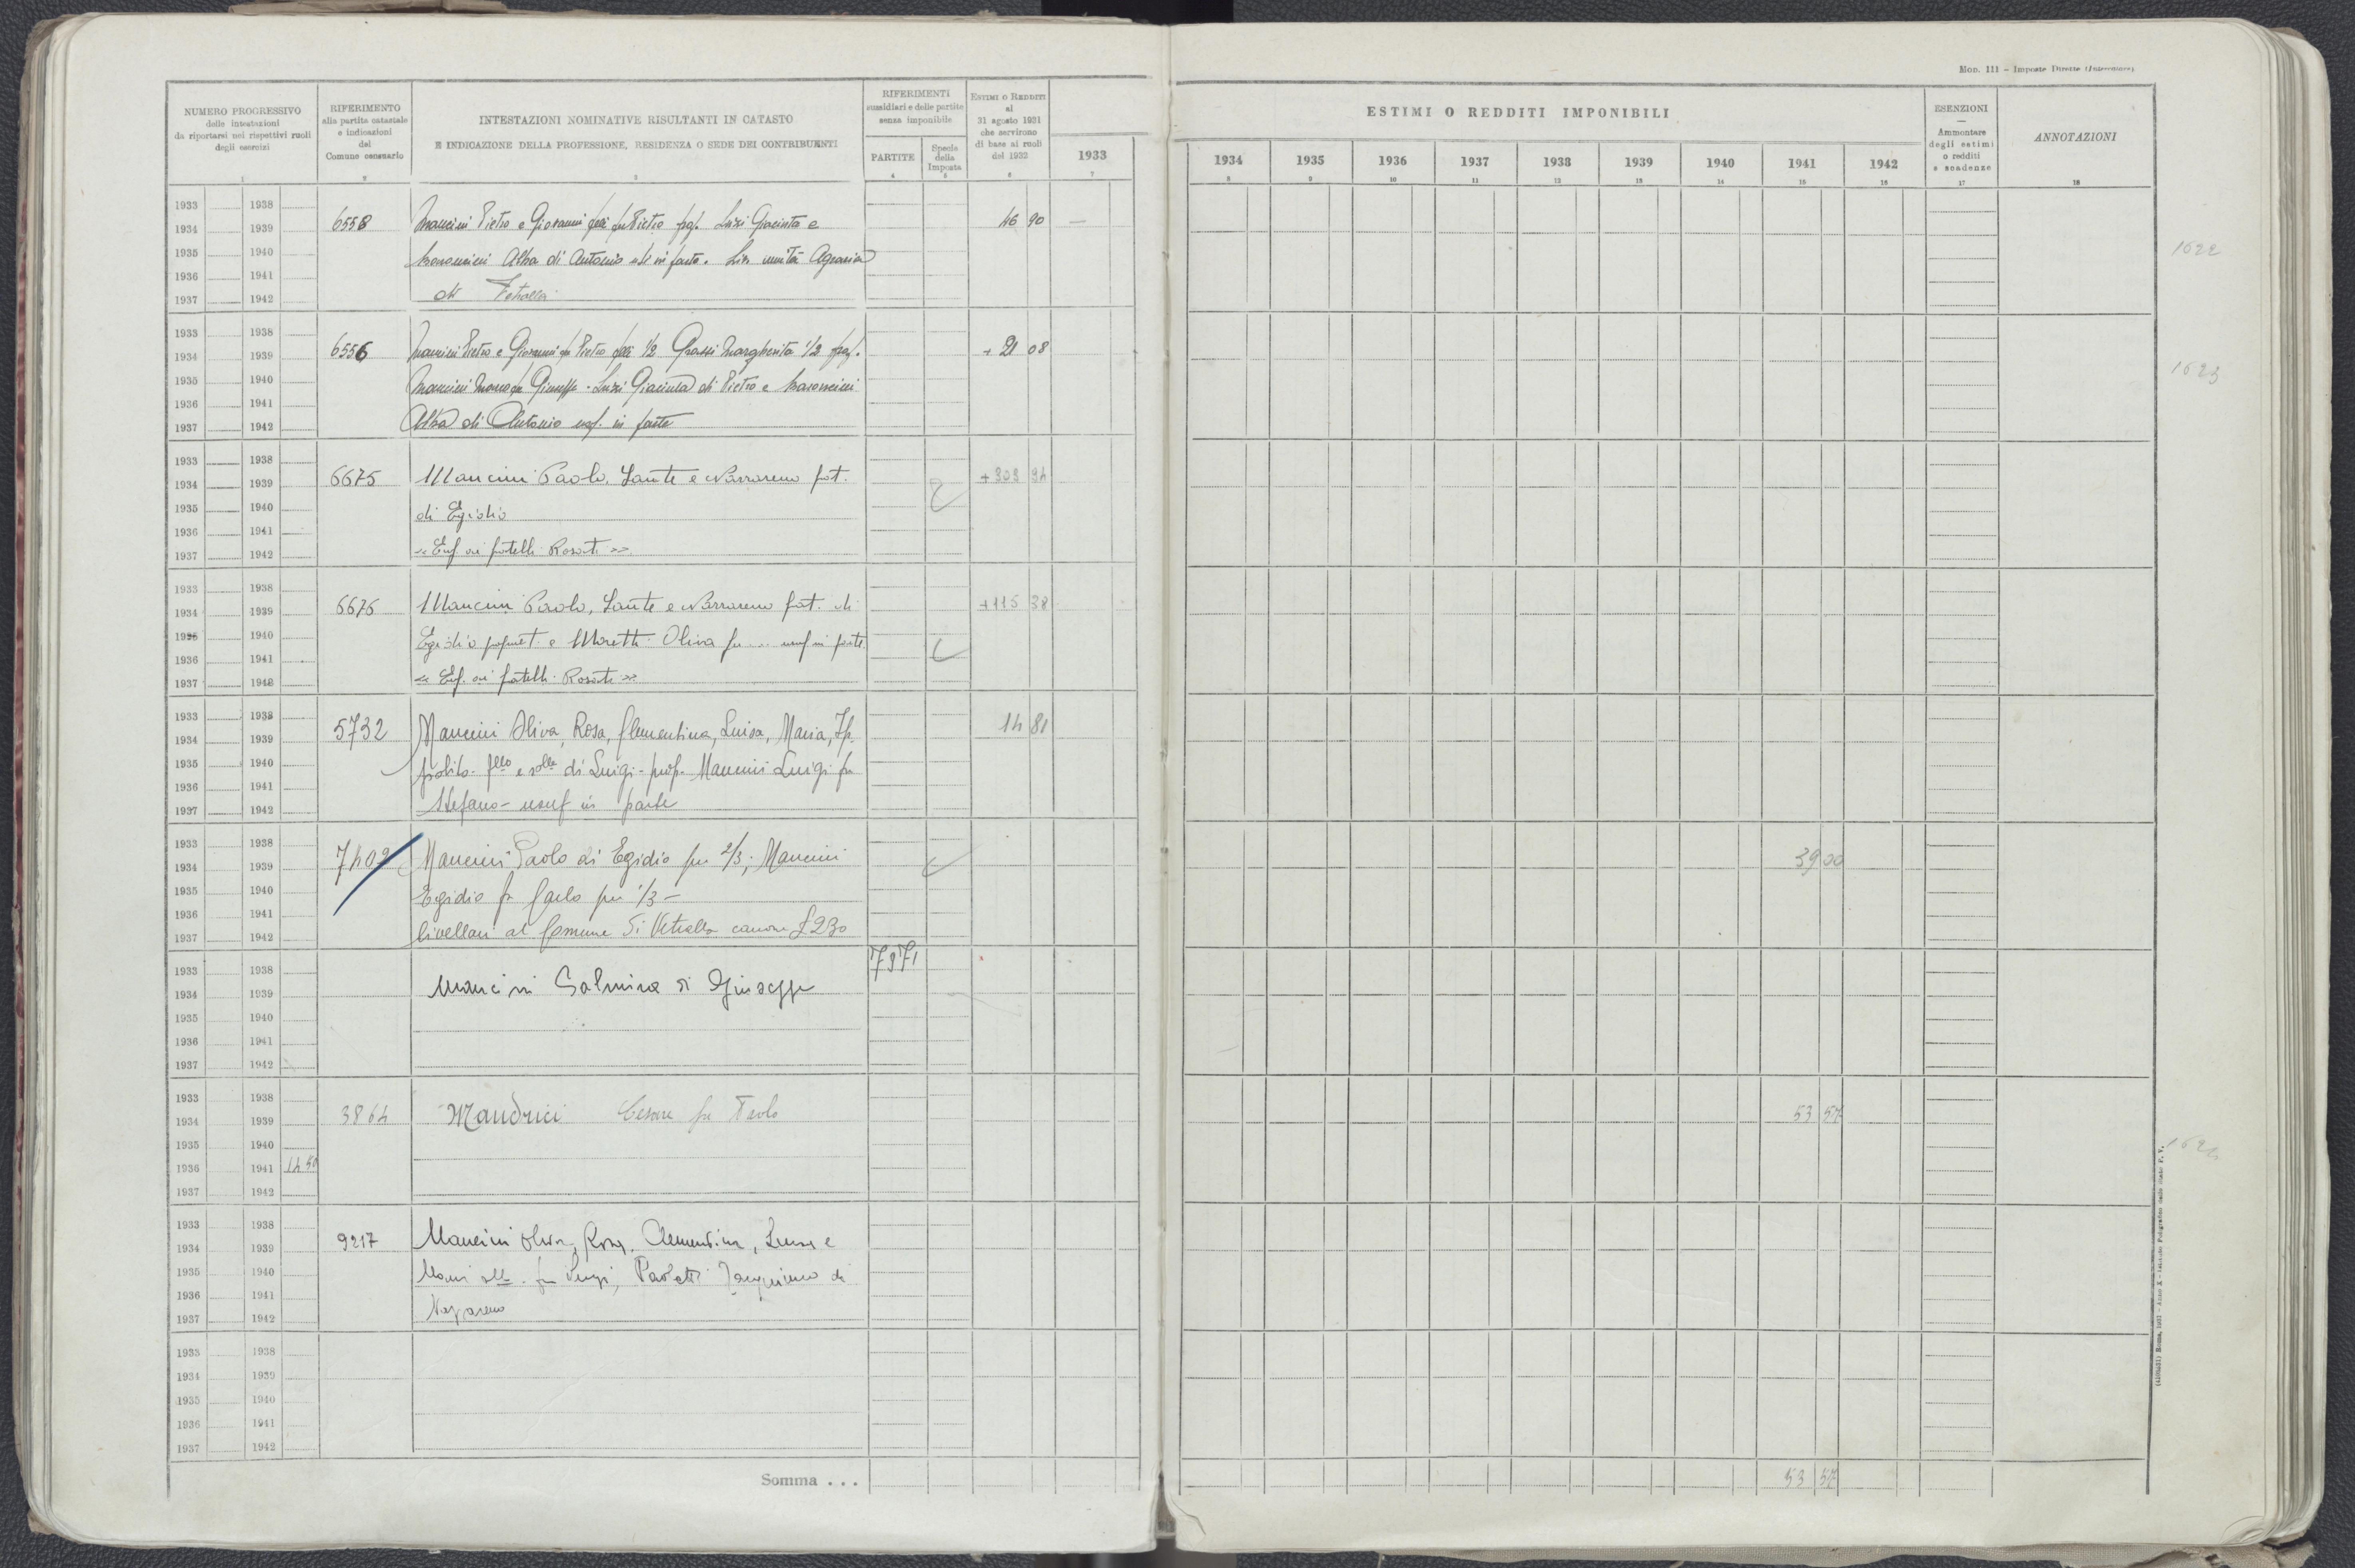 Mod. 111 - Imposte Dirette (Intercalare)
NUMERO PROGRESSIVO
delle intestazioni
da riportarsi nei rispettivi ruoli
degli esercizi
RIFERIMENTO
alla partita catastale
e indicazioni
del
Comune censuario
INTESTAZIONI NOMINATIVE RISULTANTI IN CATASTO
E INDICAZIONE DELLA PROFESSIONE, RESIDENZA O SEDE DEI CONTRIBUENTI
RIFERIMENTI
sussidiari e delle partite
senza imponibile
PARTITE
Specie
della
Imposta
ESTIMI O REDDITI
al
31 agosto 1931
che servirono
di base ai ruoli
del 1932
ESTIMI O REDDITI IMPONIBILI
1933 1934 1935 1936 1937 1938 1939 1940 1941 1942
ESENZIONI
—
Ammontare
degli estimi
o redditi
e scadenze
ANNOTAZIONI
1 2 3 4 5 6 7 8 9 10 11 12 13 14 15 16 17 18
1933 1938
1934 1939 6558 Mancini Pietro e Giovanni flli fu Pietro prop. Luzi Giacinta e 46 90 —
1935 1940 Alba di Antonio usuf in parte. Liv. unità Agraria 1622
1936 1941
1937 1942 di Vetralla
1933 1938
1934 1939 6556 Mancini Pietro e Giovanni fu Pietro flli 1/2 Grassi Margherita 1/2 prop. + 21 08
1935 1940 Mancini fu Giuseppe - Luzi Giacinta di Pietro e 1623
1936 1941
1937 1942 Alba di Antonio usf. in parte
1933 1938
1934 1939 6675 Mancini Paolo, Sante e Nazzareno frat. + 303 94
1935 1940 di Egidio
1936 1941
1937 1942 « Enf. ai fratelli Rosati »
1933 1938
1934 1939 6676 Mancini Paolo, Sante e Nazzareno frat. di +115 38
1935 1940 Egidio propriet. e Moretti Oliva fu ... usuf in parte
1936 1941
1937 1942 « Enf. ai fratelli Rosati »
1933 1938
1934 1939 5732 Mancini Oliva, Rosa, Clementina, Luisa, Maria, Ip- 14 81
1935 1940 polito flle e slle di Luigi - prop. Mancini Luigi fu
1936 1941
1937 1942 Stefano - usuf in parte
1933 1938
1934 1939 7402 Mancini Paolo di Egidio per 2/3; Mancini 39 00
1935 1940 Egidio fu Carlo per 1/3 -
1936 1941
1937 1942 livellari al Comune di Vetralla canone £ 230
1933 1938 7371
1934 1939 Mancini Salmina di Giuseppe
1935 1940
1936 1941
1937 1942
1933 1938
1934 1939 3864 Mandrici Cesare fu Paolo 53 57
1935 1940
1936 1941 14 50
1937 1942
1933 1938
1934 1939 9217 Mancini Oliva, Rosa, Clementina, Luisa e
1935 1940 Maria slle fu Luigi, Paoletti di
1936 1941 Nazzareno
1937 1942
1933 1938
1934 1939
1935 1940
1936 1941
1937 1942
Somma . . . 53 57